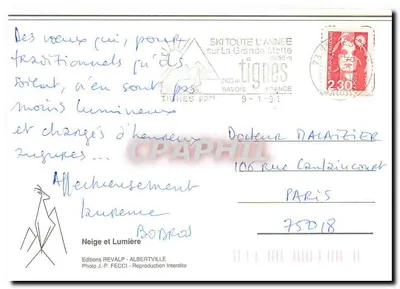 Des vœux qui, pour
traditionnels qu'ils
soient, n'en sont pas
moins lumineux
et chargés d'heureux
augures...
Affectueusement
Laurence
BODROS
SKI TOUTE L'ANNEE
sur La Grande Motte
tignes
SAVOIE FRANCE
9-1-91
2,30
Docteur MALAIZIER
106 rue Caulaincourt
PARIS
75018
Neige et Lumière
Editions REVALP - ALBERTVILLE
Photo J.-P. FECCI - Reproduction Interdite
CPAPHIL